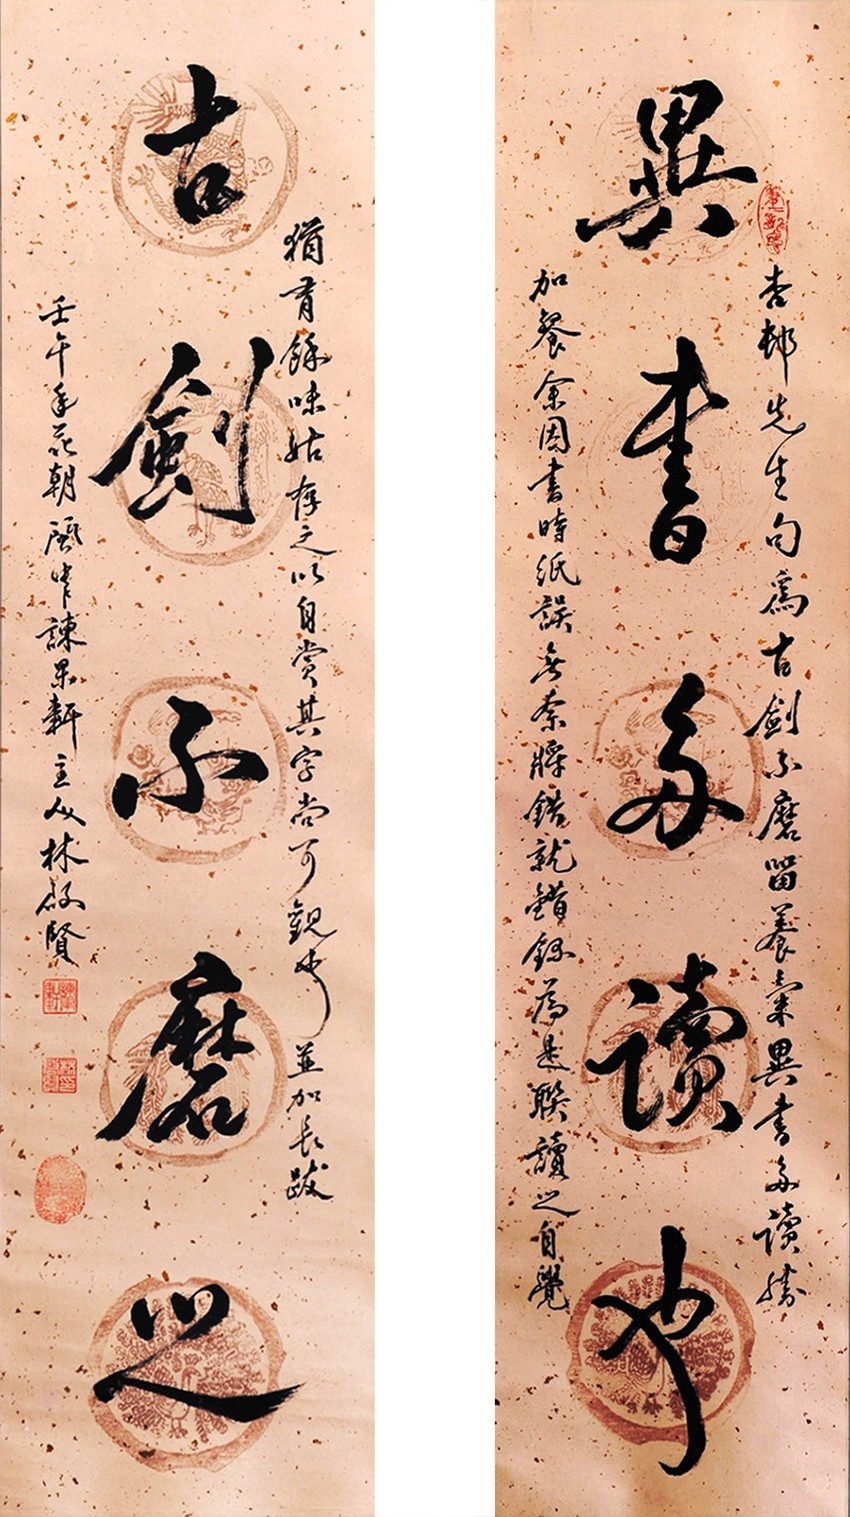 杏邨先生句為古劍不磨留養氣異書多讀勝
異書多讀也
加餐余因書時紙誤無奈將錯就錯録為是聯讀之自覺
猶有餘味姑存之以自賞其字尚可觀也 並加長跋
古劍不磨之
壬午年花朝諫果軒主人林啟賢